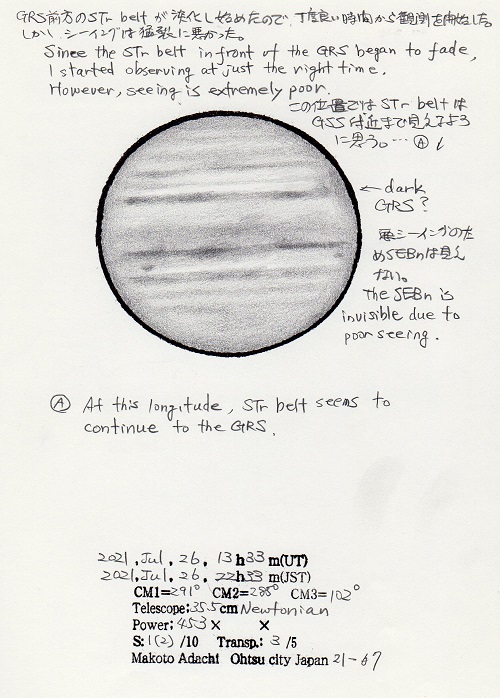 GRS前方のSTr beltが淡化し始めたので、丁度良い時間から観測を開始した。
しかし シーイングは猛裂に悪かった。
Since the STr belt in front of the GRS began to fade,
I started observing at just the right time.
However, seeing is extremely poor.
この位置ではSTr beltは
GSS付近まで見えてるよう
に思う。… Ⓐ
← dark
GRS?
悪シーイングのた
めSEBnは見え
ない。
The SEBn is
invisible due to
poor seeing.
Ⓐ At this longitude, STr belt seems to
continue to the GRS.
2021, Jul, 26, 13h33m(UT)
2021, Jul, 26, 22h33m(JST)
CM1=291° CM2=285° CM3=102°
Telescope; 35.5cm Newtonian
Power; 453× ×
S: 1(2)/10 Transp.: 3/5
Makoto Adachi Ohtsu city Japan 21-67